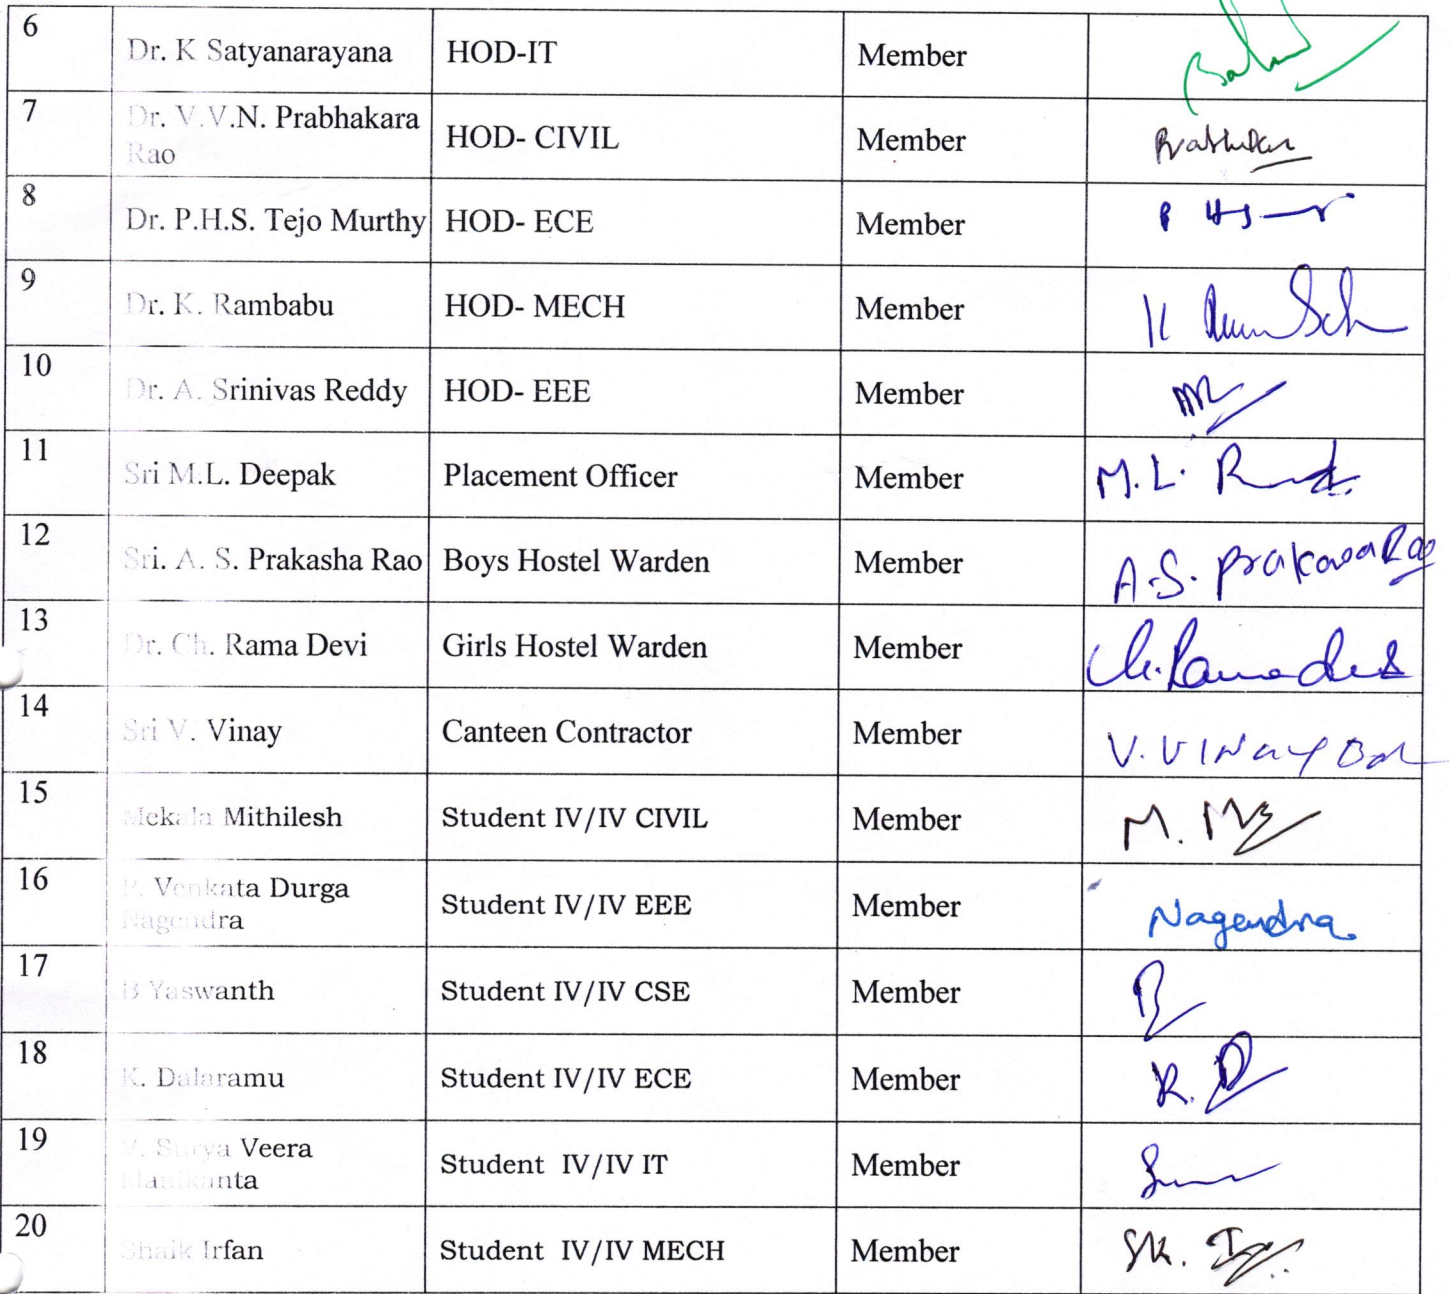 6 Dr. K Satyanarayana HOD-IT Member
7 Dr. V.V.N. Prabhakara HOD- CIVIL Member Prabhakar
Rao
8 Dr. P.H.S. Tejo Murthy HOD- ECE Member P H S
9 Dr. K. Rambabu HOD- MECH Member K
10 Dr. A. Srinivas Reddy HOD- EEE Member
11 Sri M.L. Deepak Placement Officer Member M.L.
12 Sri. A. S. Prakasha Rao Boys Hostel Warden Member A.S. Prakasa Rao
13 Dr. Ch. Rama Devi Girls Hostel Warden Member Ch. Ramadevi
14 Sri V. Vinay Canteen Contractor Member V. VINAY
15 Mekala Mithilesh Student IV/IV CIVIL Member M.
16 P. Venkata Durga Student IV/IV EEE Member Nagendra
Nagendra
17 B Yaswanth Student IV/IV CSE Member
18 K. Dalaramu Student IV/IV ECE Member K. D
19 V. Surya Veera Student IV/IV IT Member
Manikanta
20 Shaik Irfan Student IV/IV MECH Member SK.